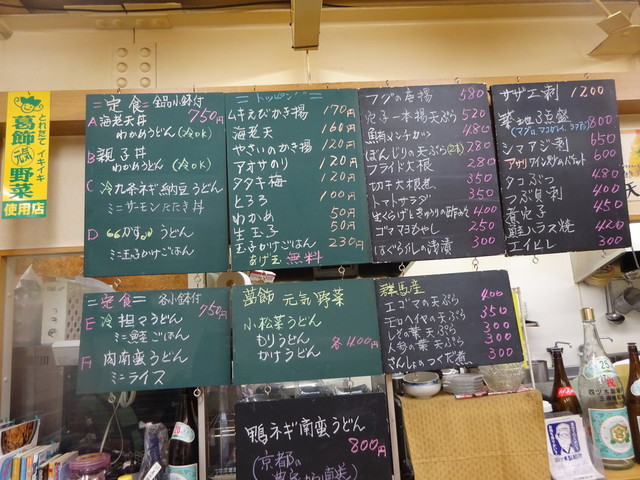 とれたて イキイキ
葛飾
元気
野菜
使用店
= 定食 = 全品小鉢付
A 海老天丼 750円
わかめうどん (冷OK)
B 親子丼
わかめうどん (冷OK)
C 冷九条ネギ納豆うどん
ミニサーモンたたき丼
D うどん
ミニ玉子かけごはん
= トッピング =
ムキえびかき揚 170円
海老天 160円
やさいのかき揚 120円
アオサのり 120円
タタキ梅 120円
とろろ 100円
わかめ 50円
生玉子 50円
玉子かけごはん 230円
あげ玉 無料
フグの唐揚 580
穴子一本揚天ぷら 520
鮪メンチカツ 480
ぼんじりの天ぷら(2本) 280
フライド大根 280
切干大根煮 350
トマトサラダ 350
生くらげときゅうりの酢のもの 400
ゴママヨもやし 250
ほぐら瓜しの浅漬 300
サザエ刺 1200
築地3点盛 800
シマアジ刺 650
アサリワイン蒸しのバゲット 600
タコぶつ 480
つぶ貝刺 400
煮穴子 450
鮭ハラス焼 420
エイヒレ 300
= 定食 = 各小鉢付
E 冷 担々うどん 750円
ミニ鮭ごはん
F 肉南蛮うどん
ミニライス
葛飾 元気野菜
小松菜うどん
もりうどん
かけうどん 各400円
群馬産
エゴマの天ぷら 400
モロヘイヤの天ぷら 350
しその葉天ぷら 300
人参の葉天ぷら 300
さんしょのつくだ煮 300
鴨ネギ南蛮うどん
800円
(京都の
農家から直送)